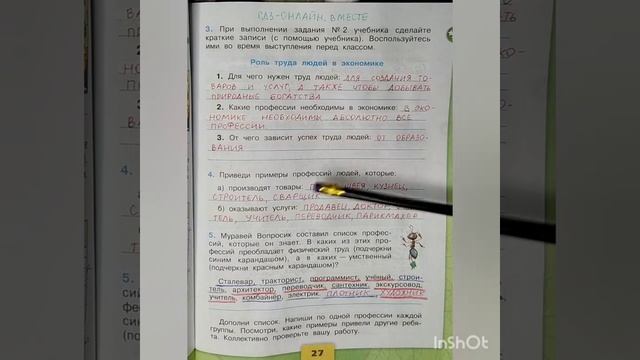 ГДЗ-ОНЛАЙН. ВМЕСТЕ
3. При выполнении задания №2 учебника сделайте
краткие записи (с помощью учебника). Воспользуйтесь
ими во время выступления перед классом.
Роль труда людей в экономике
1. Для чего нужен труд людей: ДЛЯ СОЗДАНИЯ ТО-
ВАРОВ И УСЛУГ, А ТАКЖЕ ЧТОБЫ ДОБЫВАТЬ
ПРИРОДНЫЕ БОГАТСТВА
2. Какие профессии необходимы в экономике: В ЭКО-
НОМИКЕ НЕОБХОДИМЫ АБСОЛЮТНО ВСЕ
ПРОФЕССИИ
3. От чего зависит успех труда людей: ОТ ОБРАЗО-
ВАНИЯ
4. Приведи примеры профессий людей, которые:
а) производят товары: ШВЕЯ, КУЗНЕЦ,
СТРОИТЕЛЬ, СВАРЩИК
б) оказывают услуги: ПРОДАВЕЦ,
ТЕЛЬ, УЧИТЕЛЬ, ПЕРЕВОДЧИК, ПАРИКМАХЕР
5. Муравей Вопросик составил список профес-
сий, которые он знает. В каких из этих про-
фессий преобладает физический труд (подчеркни
синим карандашом), а в каких — умственный
(подчеркни красным карандашом)?
Сталевар, тракторист, программист, учёный, строи-
тель, архитектор, переводчик, сантехник, экскурсовод,
учитель, комбайнёр, электрик. ПЛОТНИК, ХУДОЖНИК
Дополни список. Напиши по одной профессии каждой
группы. Посмотри, какие примеры привели другие ребя-
та. Коллективно проверьте вашу работу.
27
InShOt